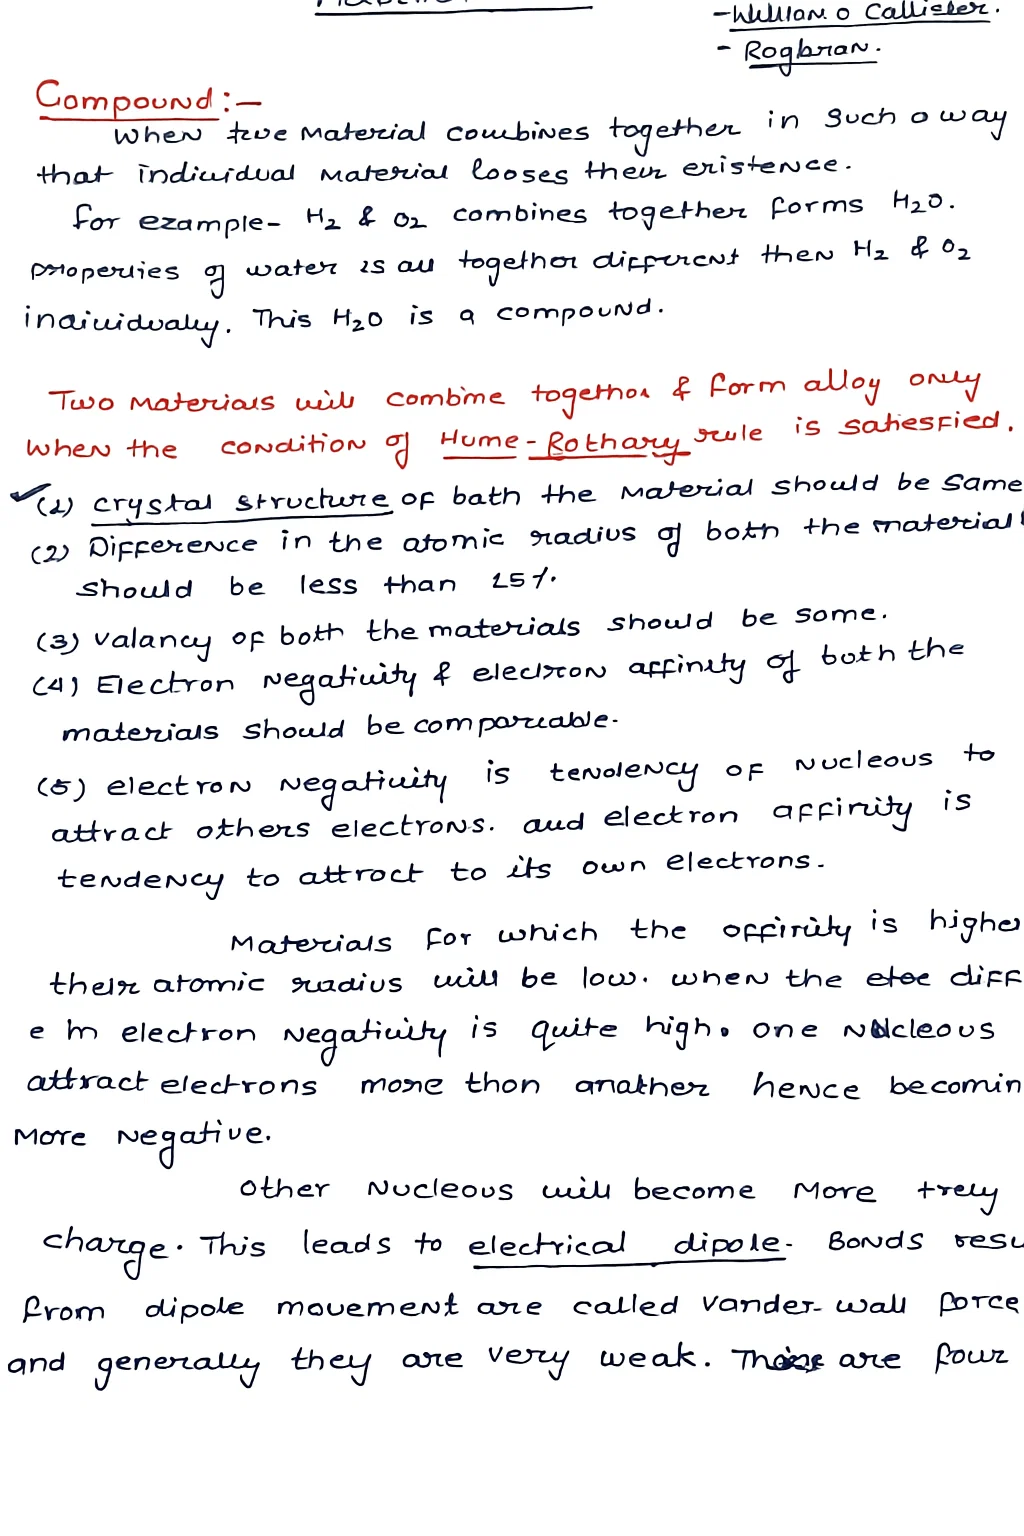 -William o Callister.
- Roghran.
Compound :-
When two Material combines together in such a way
that individual Material looses their existence.
for example- H2 & O2 combines together forms H2O.
properties of water is all together different then H2 & O2
individually. This H2O is a compound.
Two Materials will combine together & form alloy only
when the condition of Hume-Rothary rule is satiesfied.
(1) crystal structure of bath the Material should be same
(2) Difference in the atomic radius of both the material
should be less than 15%.
(3) valancy of both the materials should be some.
(4) Electron Negativity & electron affinity of both the
materials should be compareable.
(5) electron Negativity is tendency of Nucleous to
attract others electrons. and electron affinity is
tendency to attract to its own electrons.
Materials for which the affinity is higher
their atomic radius will be low. when the diff
e in electron Negativity is quite high. one Nucleous
attract electrons more than anather hence becomin
More Negative.
Other Nucleous will become More +vely
charge. This leads to electrical dipole. Bonds resu
from dipole movement are called vander-wall force
and generally they are very weak. are four